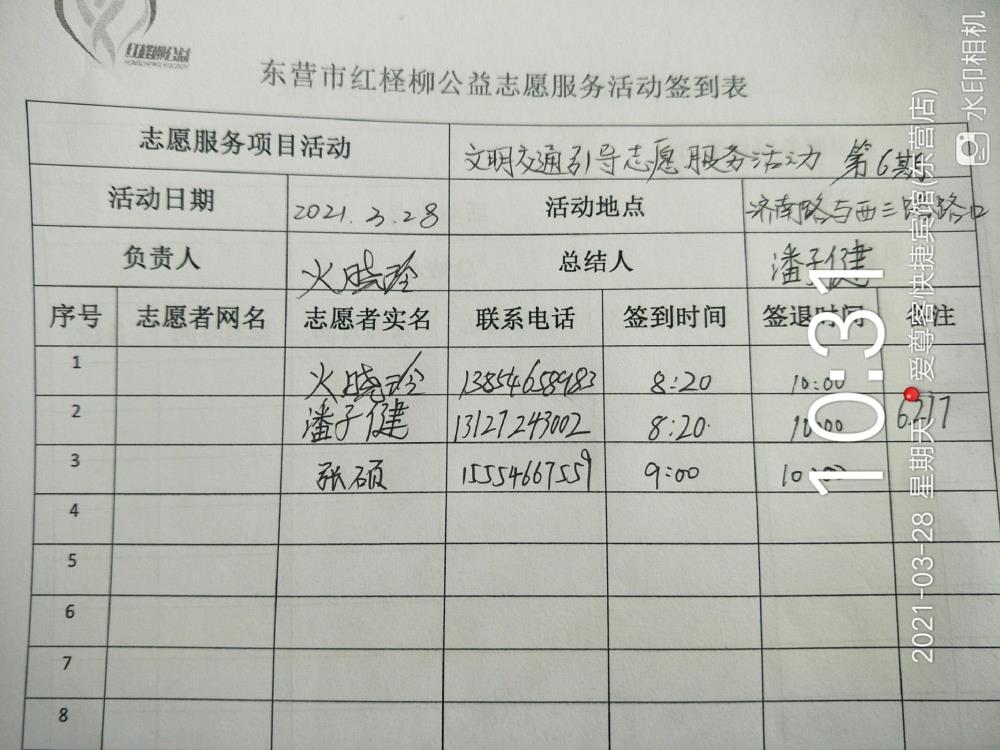 红柽柳公益
东营市红柽柳公益志愿服务活动签到表
志愿服务项目活动 文明交通引导志愿服务活动 第6期
活动日期 2021.3.28 活动地点 济南路与西三路路口
负责人 火晓玲 总结人 潘子健
序号 志愿者网名 志愿者实名 联系电话 签到时间 签退时间 备注
1 火晓玲 13854658983 8:20 10:00
2 潘子健 13127243002 8:20 10:00 6217
3 张硕 15554667559 9:00 10:00
4
5
6
7
8
10:31
2021-03-28 星期天 爱尊客快捷宾馆(东营店)
水印相机